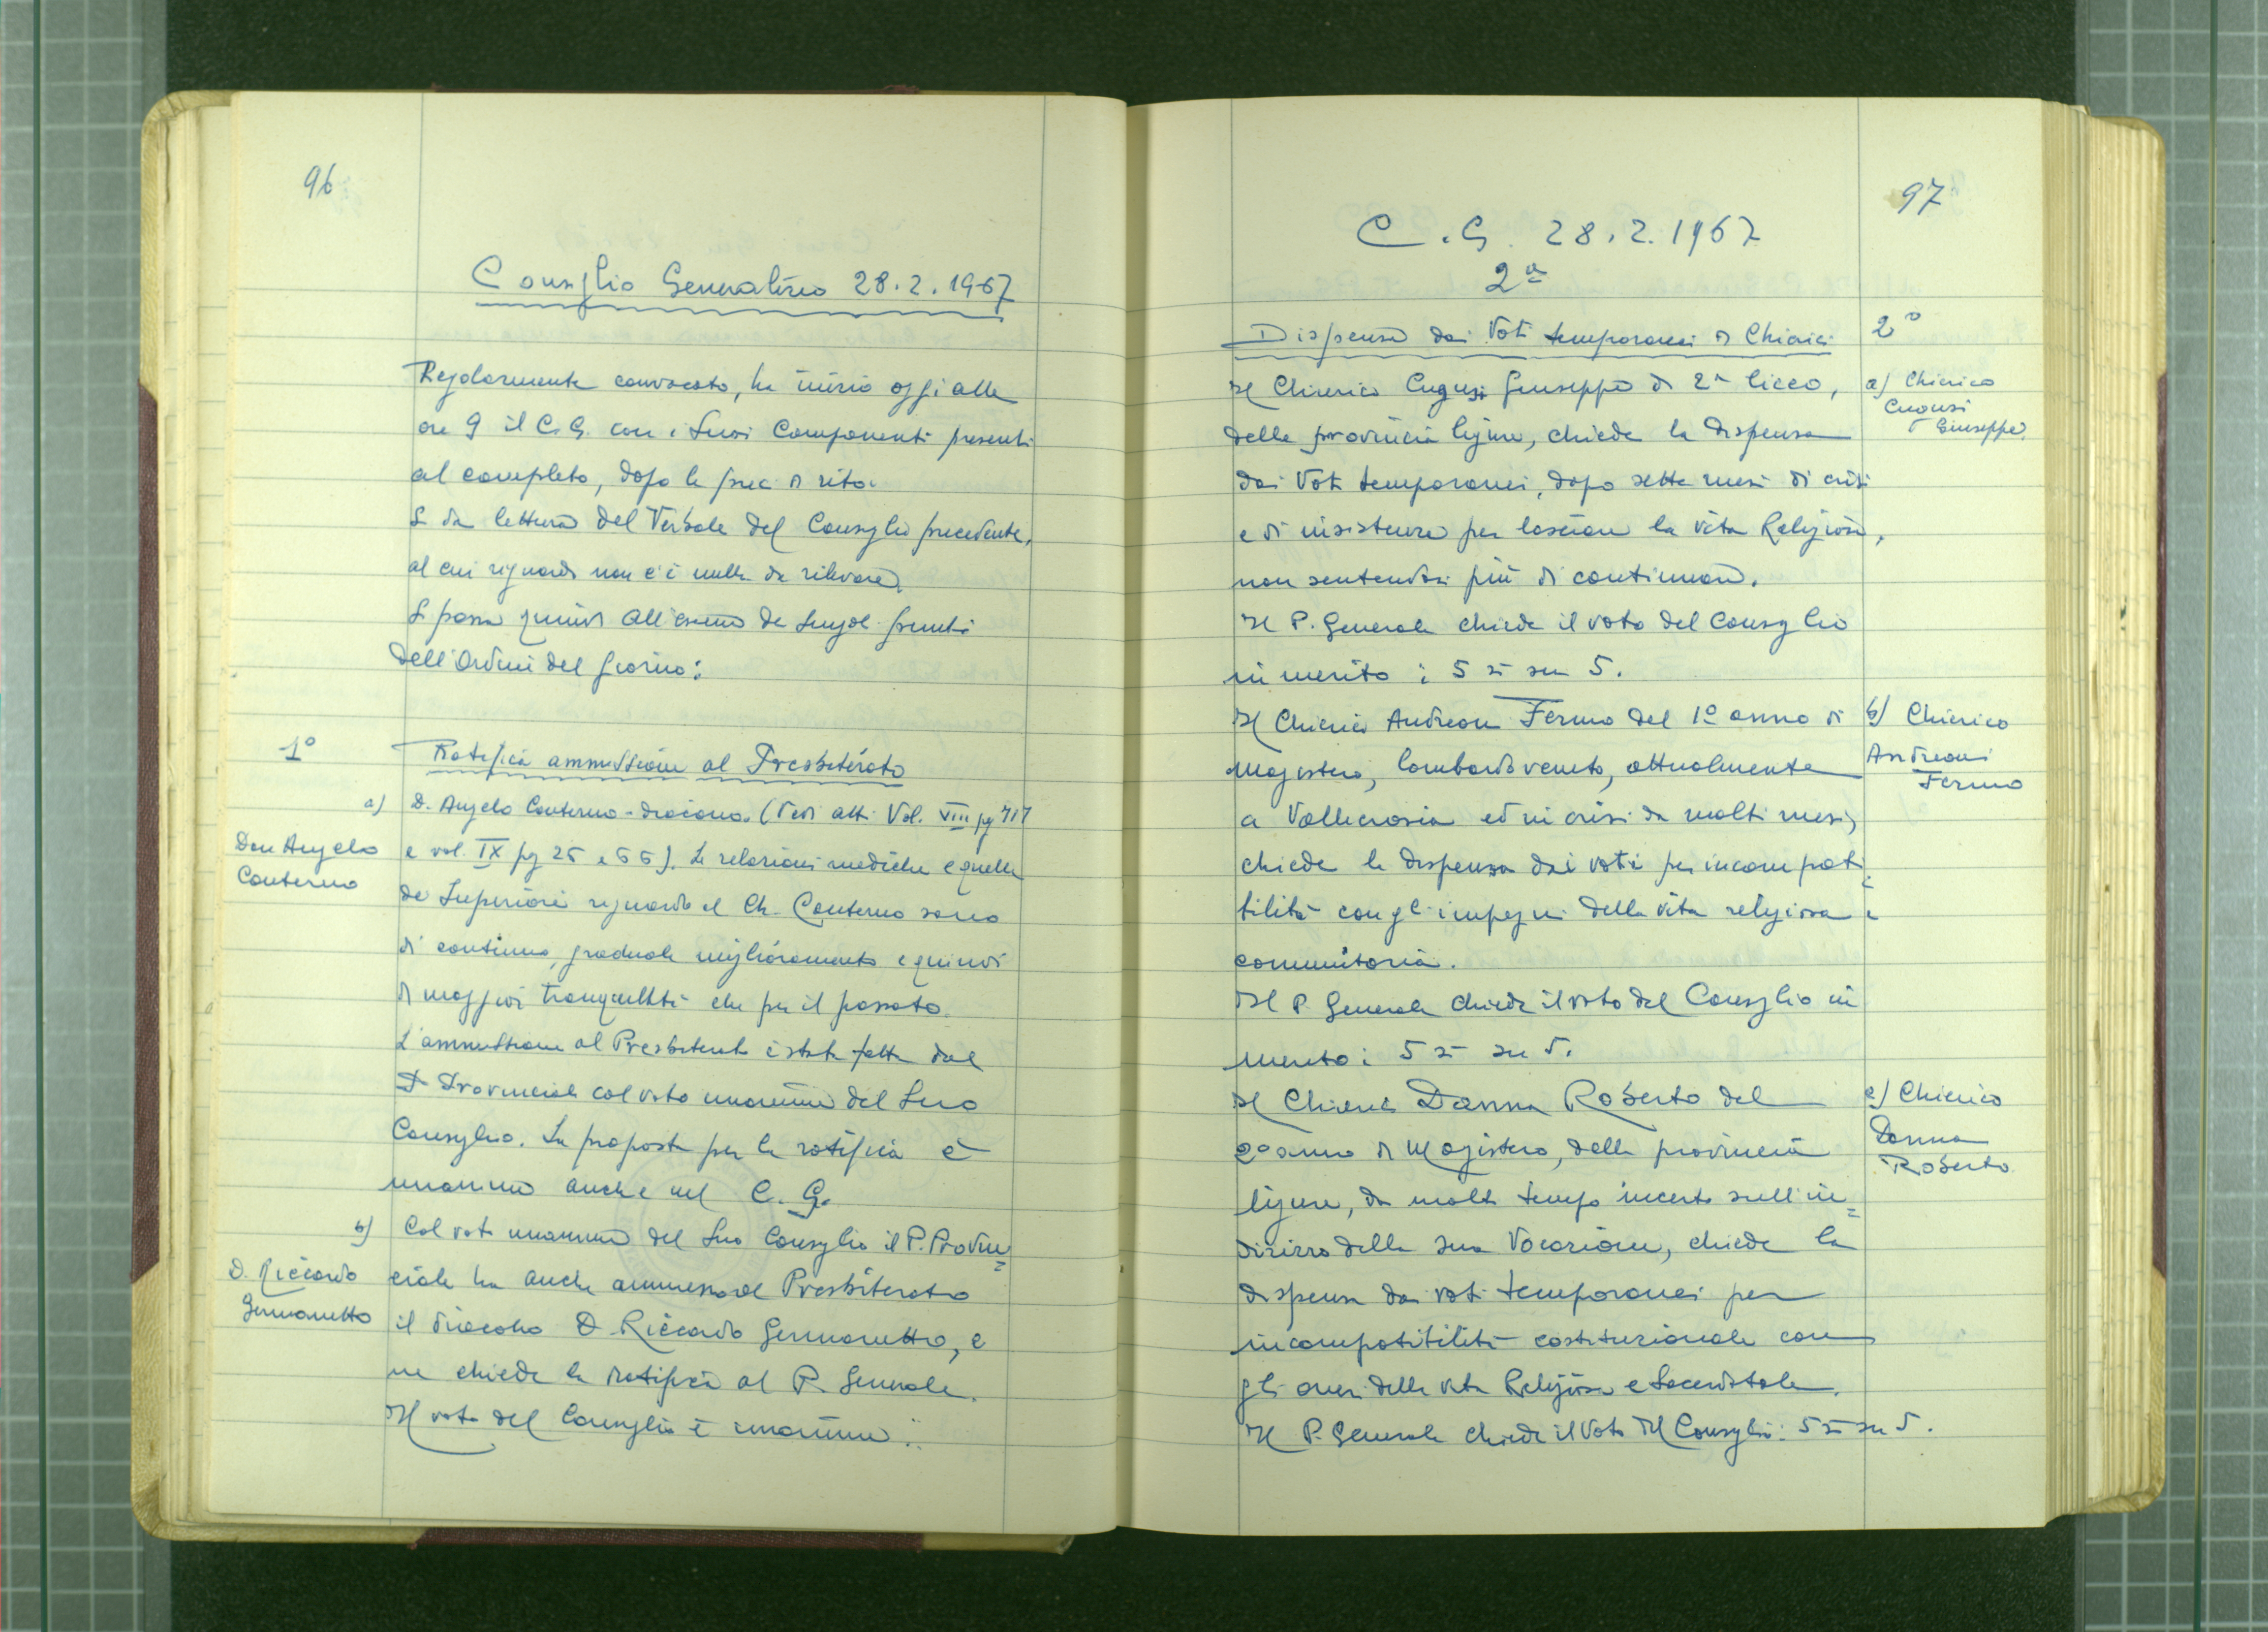 96
Consiglio Generalizio 28.2.1967
Regolarmente convocato, ha inizio oggi alle
ore 9 il C.G. con i Suoi Componenti presenti
al completo, dopo le preci di rito.
Si dà lettura del Verbale del Consiglio precedente,
al cui riguardo non c'è nulla da rilevare.
Si passa quindi all'esame dei Singoli punti
dell'Ordine del giorno:
1°
Ratifica ammissione al Presbiterato
a)
Don Angelo
Conterno
D. Angelo Conterno - diacono. (Vedi atti Vol. VIII pg 717
e vol. IX pg 25 e 55). Le relazioni mediche e quelle
dei Superiori riguardo al Ch. Conterno sono
di continuo, graduale miglioramento e quindi
di maggior tranquillità che per il passato.
L'ammissione al Presbiterato è stata fatta dal
P. Provinciale col voto unanime del Suo
Consiglio. La proposta per la ratifica è
unanime anche nel C.G.
b)
D. Riccardo
Germanetto
Col voto unanime del Suo Consiglio il P. Provin=
ciale ha anche ammesso al Presbiterato
il diacono D. Riccardo Germanetto, e
ne chiede la ratifica al P. Generale.
Il voto del Consiglio è unanime.
97
C.G. 28.2.1967
2ª
Dispensa dai Voti temporanei di Chierici
2°
Il Chierico Cugusi Giuseppe di 2ª liceo,
della provincia ligure, chiede la dispensa
dai Voti temporanei, dopo sette mesi di crisi
e di insistenze per lasciare la vita Religiosa,
non sentendosi più di continuare.
Il P. Generale chiede il voto del Consiglio
in merito: 5 sì su 5.
a) Chierico
Cugusi
Giuseppe
Il Chierico Andreoni Fermo del 1° anno di
Magistero, lombardo veneto, attualmente
a Vallecrosia ed in crisi da molti mesi,
chiede la dispensa dai voti per incompati=
bilità con gli impegni della vita religiosa e
comunitaria.
Il P. Generale chiede il voto del Consiglio in
merito: 5 sì su 5.
b) Chierico
Andreoni
Fermo
Il Chierico Danna Roberto del
2° anno di Magistero, della provincia
ligure, da molto tempo incerto sull'in=
dirizzo della sua Vocazione, chiede la
dispensa dai voti temporanei per
incompatibilità costituzionale con
gli oneri della vita Religiosa e Sacerdotale.
Il P. Generale chiede il Voto del Consiglio: 5 sì su 5.
c) Chierico
Danna
Roberto